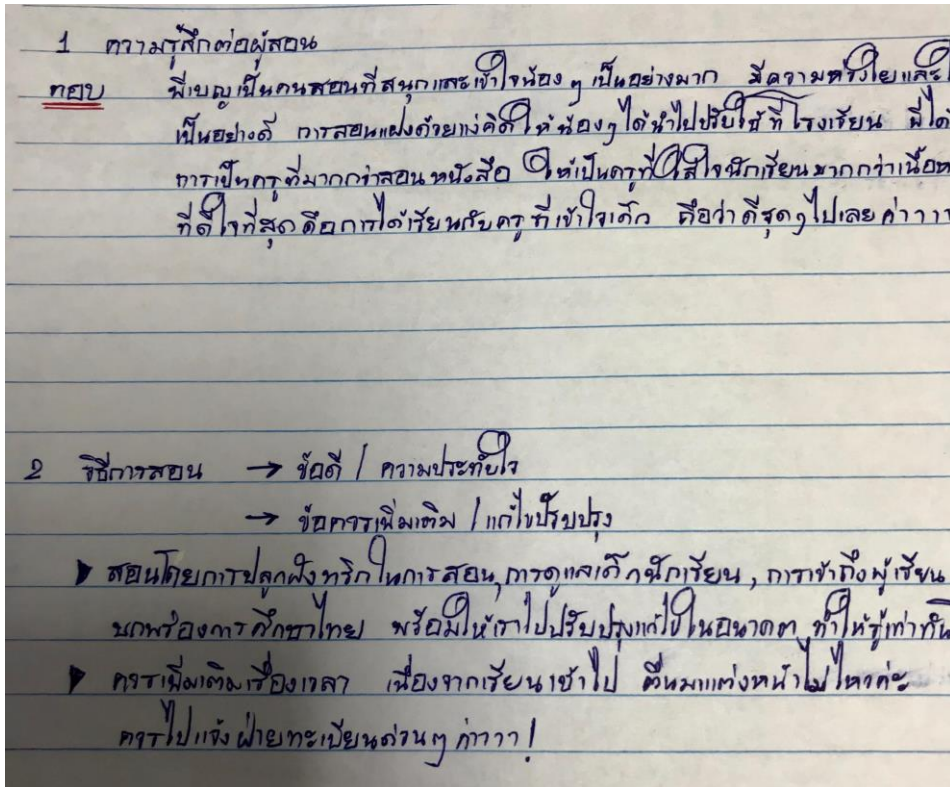 1 ความรู้สึกต่อผู้สอน
ตอบ พี่เบญเป็นคนสอนที่สนุกและเข้าใจน้องๆ เป็นอย่างมาก มีความห่วงใยและใ
เป็นอย่างดี การสอนแฝงด้วยแง่คิดให้น้องๆ ได้นำไปปรับใช้ที่โรงเรียน พี่ได้
การเป็นครูที่มากกว่าสอนหนังสือ ให้เป็นครูที่ใส่ใจนักเรียนมากกว่าเนื้อห
ที่ดีใจที่สุดคือการได้เรียนกับครูที่เข้าใจเด็ก ถือว่าดีสุดๆ ไปเลยค่าาาา
2 วิธีการสอน → ข้อดี / ความประทับใจ
→ ข้อควรเพิ่มเติม / แก้ไขปรับปรุง
▶ สอนโดยการปลูกฝังทริกในการสอน, การดูแลเด็กนักเรียน, การเข้าถึงผู้เรียน
บกพร่องการศึกษาไทย พร้อมให้เราไปปรับปรุงแก้ไขในอนาคต ทำให้รู้เท่าทัน
▶ ควรเพิ่มเติมเรื่องเวลา เนื่องจากเรียนเช้าไป ตื่นมาแต่งหน้าไม่ไหวค่ะ
ควรไปแจ้งฝ่ายทะเบียนด่วนๆ ค่าาาา!